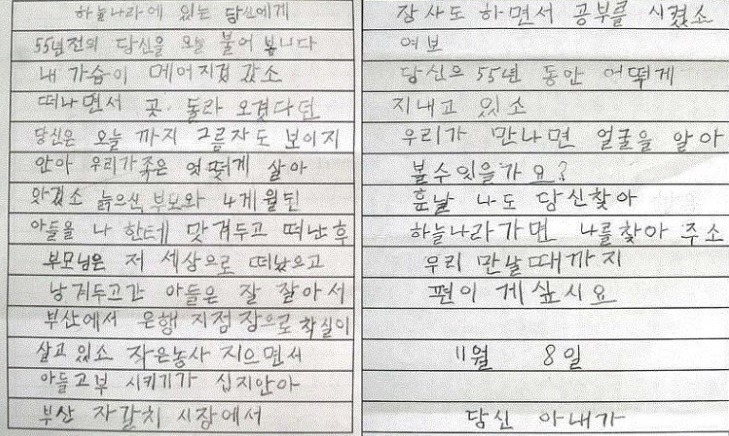 하늘나라에 있는 당신에게
55년전의 당신을 오늘 불어 봅니다
내 가슴이 메어지겁 갔소
떠나면서 곳. 돌라 오겠다던
당신은 오늘 까지 그름자도 보이지
안아 우리가족은 엇떻게 살아
왔겠소 늙으신 부모와 4게월된
아들을 나 한테 맛겨두고 떠난후
부모님은 저 세상으로 떠났으고
남겨두고간 아들은 잘 잘아서
부산에서 은행 지점장으로 착실이
살고 있소 작은농사 지으면서
아들고부 시키기가 십지안아
부산 자갈치 시장에서
장사도 하면서 공부를 시켰소
여보
당신으 55년 동안 어떻게
지내고 있소
우리가 만나면 얼굴을 알아
볼수있을가요?
훗날 나도 당신찾아
하늘나라가면 나를찾아 주소
우리 만날때까지
편이 게싶시요
11월 8일
당신 아내가